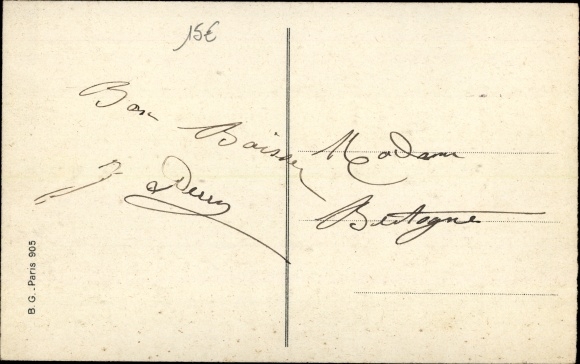 15€
Bon Baiser
Madame
Bretagne
B. G. - Paris 905